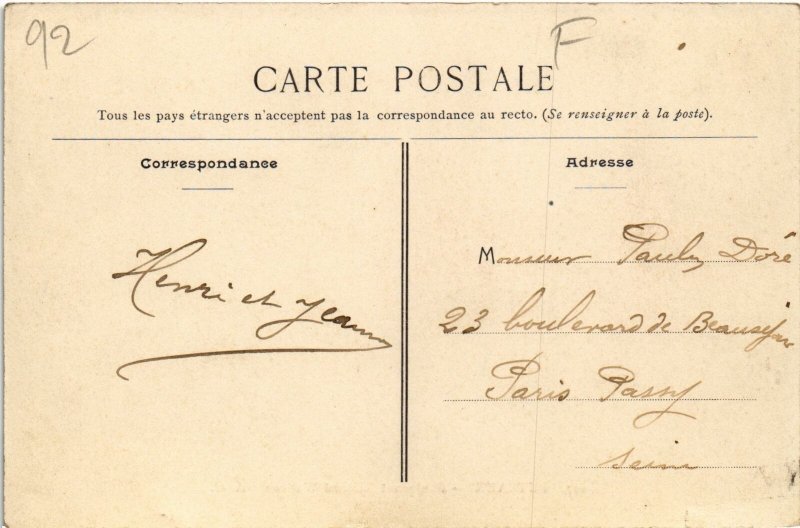 92
F
CARTE POSTALE
Tous les pays étrangers n'acceptent pas la correspondance au recto. (Se renseigner à la poste).
Correspondance
Henri et Jeanne
Adresse
Monsieur Paulin Doré
23 boulevard de Beauséjour
Paris Passy
Seine